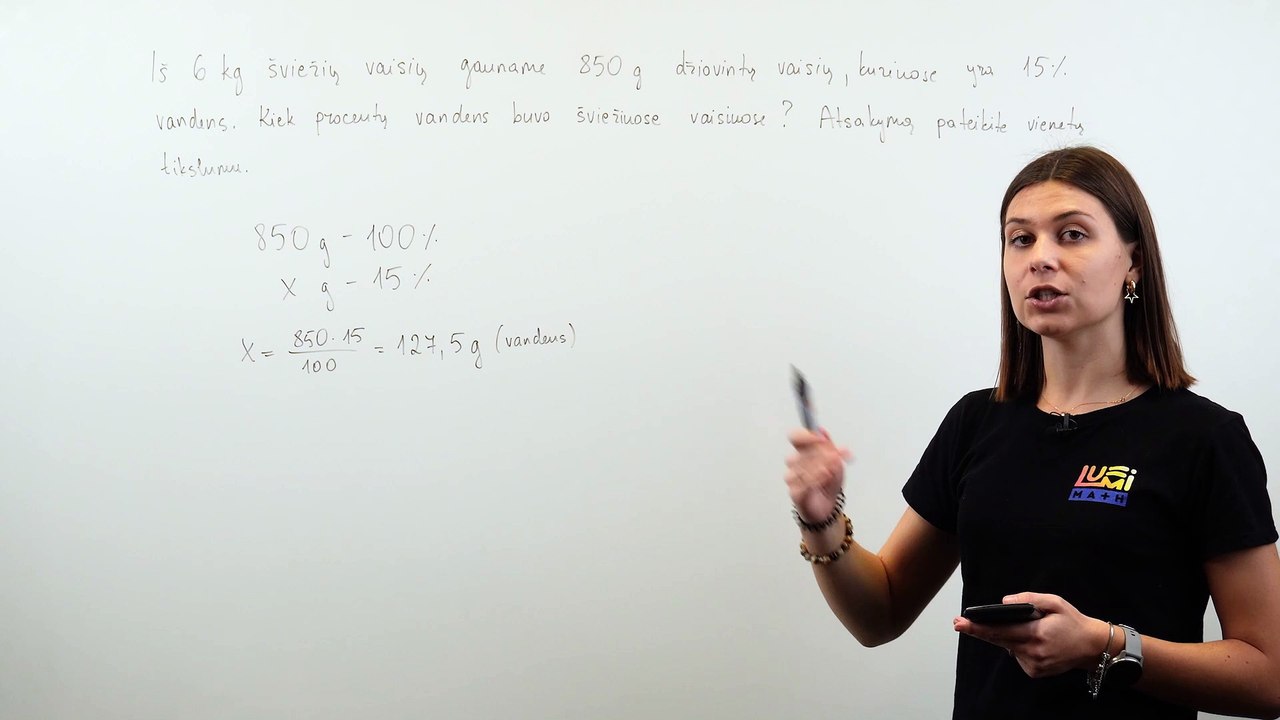 Iš 6 kg šviežių vaisių gauname 850 g džiovintų vaisių, kuriuose yra 15%
vandens. Kiek procentų vandens buvo šviežiuose vaisiuose? Atsakymą pateikite vienetų
tikslumu.
850 g - 100%
x g - 15%
x = 850 · 15 / 100 = 127,5 g (vandens)
LUMI
MATH